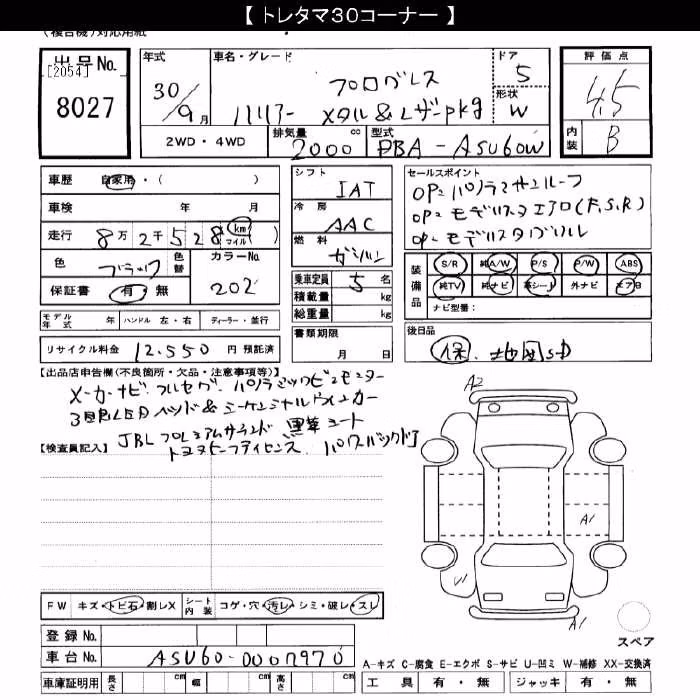 【 トレタマ30コーナー 】
(複合機)対応用紙
出品No.
[2054]
8027
年式
30/9月
車名・グレード
プログレス
ハリアー メタル&レザーpkg
ドア
5
形状
W
評価点
4.5
内装
B
2WD・4WD
排気量 2000 cc
型式 PBA-ASU60W
車歴 自家用・( )
車検 年 月
走行 8万2千528 km マイル )
色 ブラック
色替
カラーNo 202
保証書 有・無
シフト
IAT
冷房
AAC
燃料
ガソリン
乗車定員 5 名
積載量 kg
総重量 kg
セールスポイント
OP=パノラマサンルーフ
OP=モデリスタエアロ(F,S,R)
OP=モデリスタグリル
装備品
S/R 純A/W P/S P/W ABS
純TV 純ナビ 革シート 外ナビ エアB
ナビ型量:
モデル年式 年 ハンドル 左・右 ディーラー・並行
リサイクル料金 12,550 円 預託済
書類期限
月 日
後日品
保、地図SD
【出品店申告欄(不良箇所・欠品・注意事項等)】
メーカーナビ フルセグ パノラミックビューモニター
3眼LEDヘッド&シーケンシャルウィンカー
JBLプレミアムサウンド 黒革シート
トヨタセーフティセンス パワーバックドア
【検査員記入】
A2
A1
V1
A1
FW キズ・トビ石・割レX
シート内装 コゲ・穴・汚レ・シミ・破レ・スレ
スペア
登録No.
車台No. ASU60-0007970
車庫証明用 長さ cm 幅 cm 高さ cm
A-キズ C-腐食 E-エクボ S-サビ U-凹ミ W-補修 XX-交換済
工具 有・無 ジャッキ 有・無